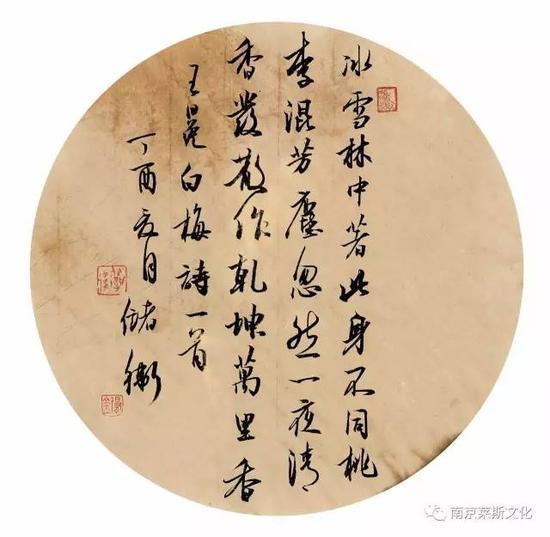 冰雪林中著此身不同桃
李混芳塵忽然一夜清
香發散作乾坤萬里香
王冕白梅詩一首
丁酉夏月儲
南京莱斯文化